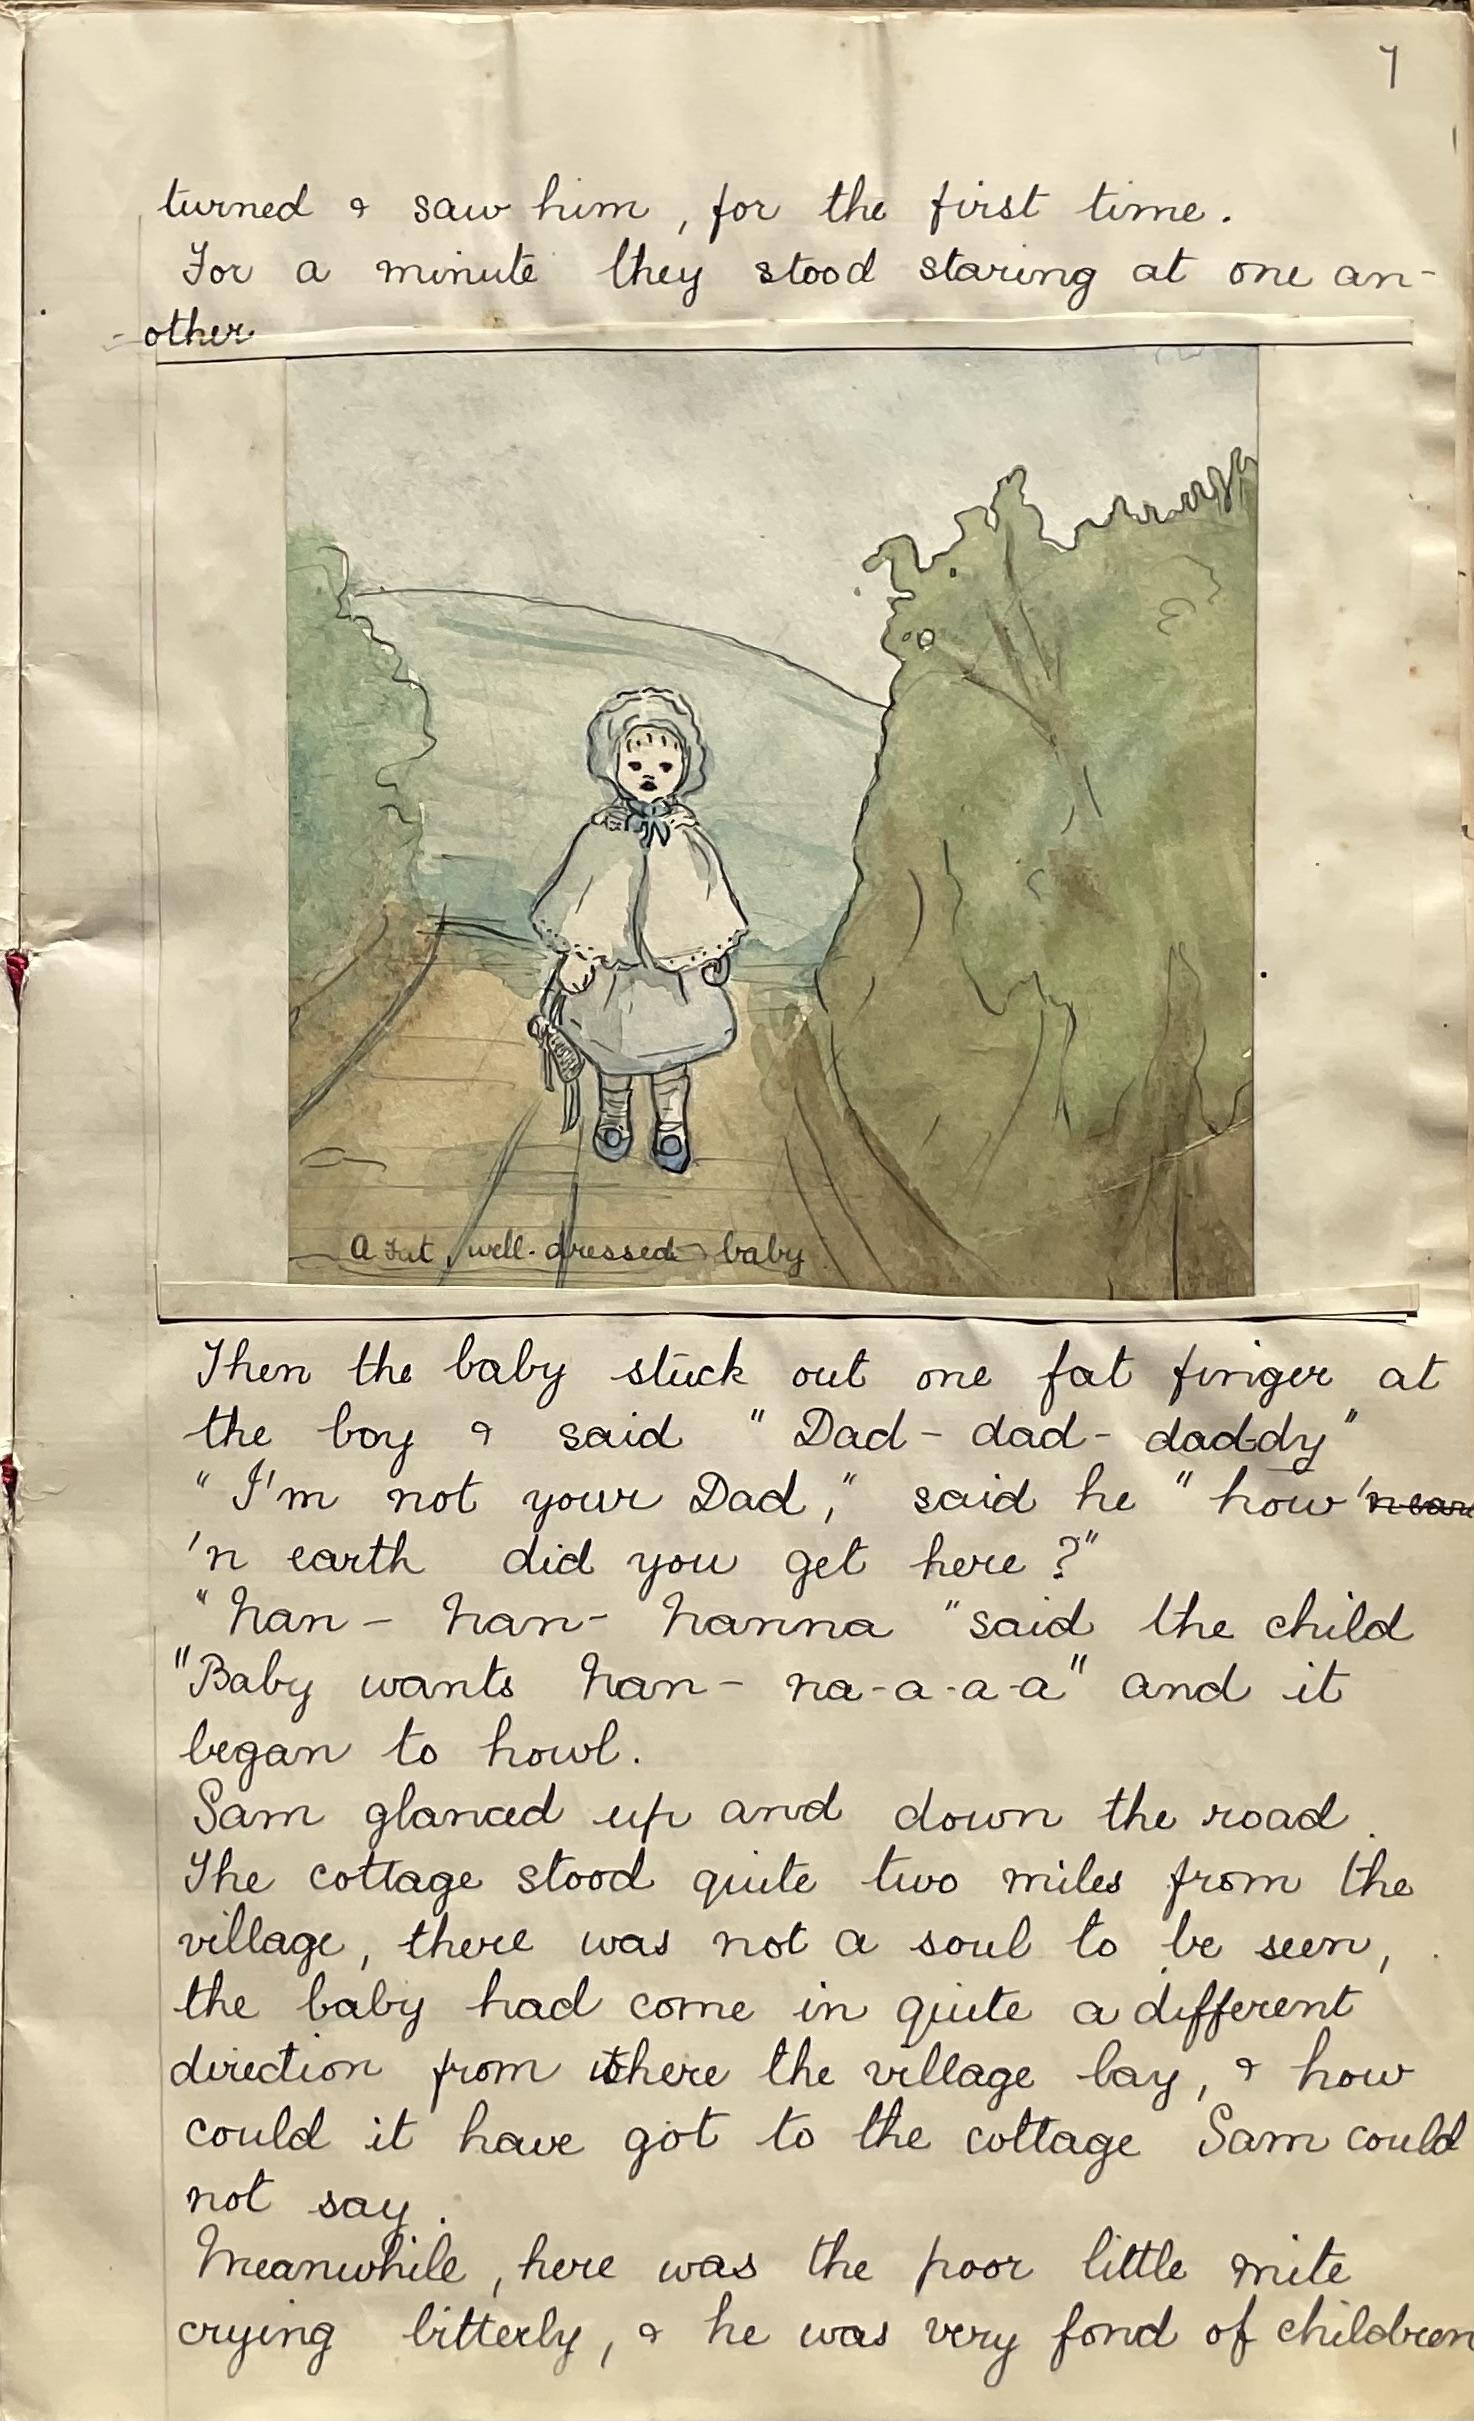 7
turned & saw him, for the first time.
For a minute they stood staring at one an-
-other
A fat, well-dressed baby
Then the baby stuck out one fat finger at
the boy & said " Dad - dad - daddy"
" I'm not your Dad," said he " how
'n earth did you get here ?"
" Nan - Nan - Nanna " said the child
"Baby wants Nan - na-a-a-a" and it
began to howl.
Sam glanced up and down the road.
The cottage stood quite two miles from the
village, there was not a soul to be seen,
the baby had come in quite a different
direction from where the village lay, & how
could it have got to the cottage Sam could
not say.
Meanwhile, here was the poor little mite
crying bitterly, & he was very fond of children